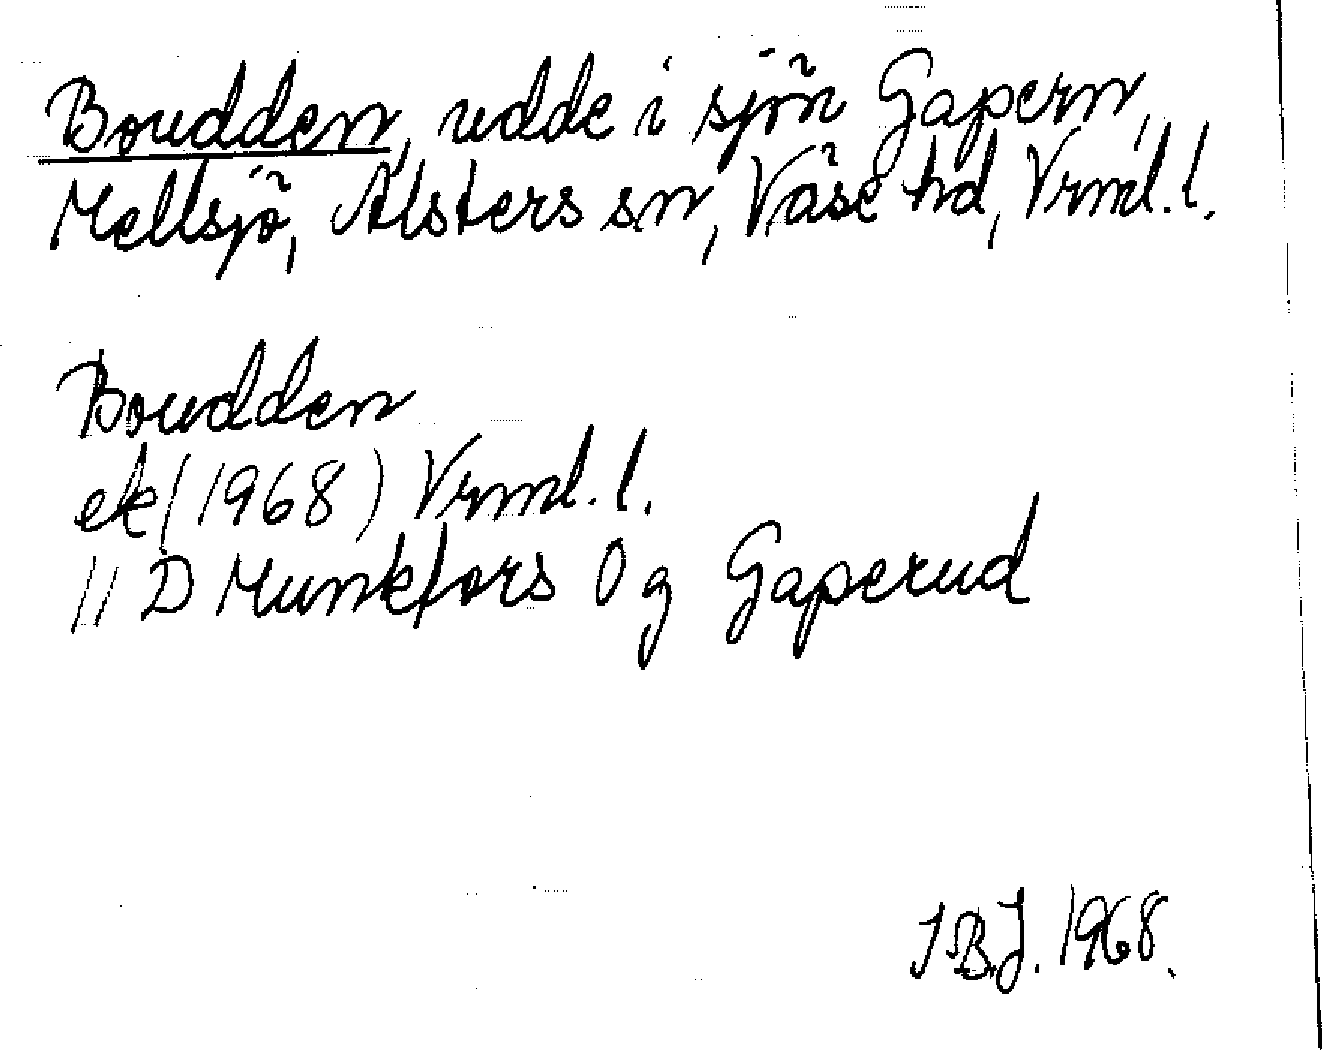 Boudden, udde i sjön Gapern,
Mellsjö, Alsters sn, Väse hd, Vrml. l.
Boudden
ek (1968) Vrml. l.
11 D Munkfors 0 g Gaperud
I B.J. 1968.